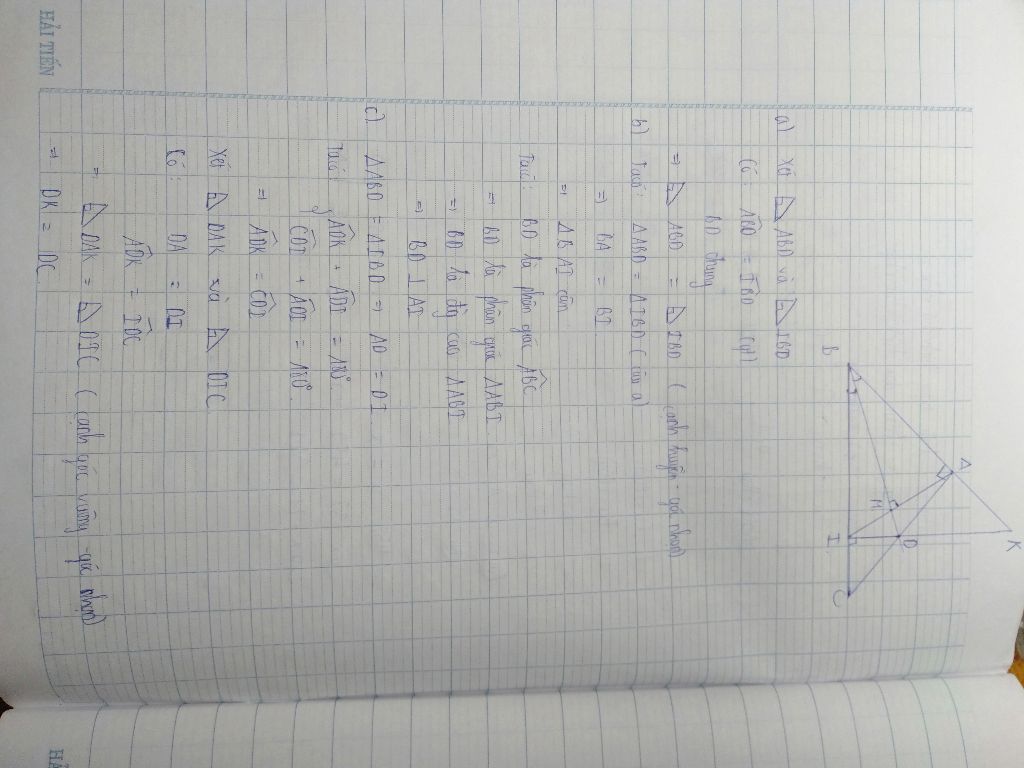 A
K
H
D
B
I
C
a) Xét ⊿ ABD và ⊿ IBD
Có: ABD = IBD (gt)
BD chung
=> ⊿ ABD = ⊿ IBD ( cạnh huyền - góc nhọn)
b) Ta có: ΔABD = ΔIBD ( câu a)
=> BA = BI
=> ΔBAI cân
Ta có: BD là phân giác ABC
=> BD là phân giác ΔABI
=> BD là đg cao ΔABI
=> BD ⊥ AI
c) ΔABD = ΔIBD => AD = DI
Ta có: ADK + ADI = 180°
CDI + ADI = 180°
=> ADK = CDI
Xét ⊿ DAK và ⊿ DIC
Có: DA = DI
ADK = IDC
=> ⊿ DAK = ⊿ DIC ( cạnh góc vuông - góc nhọn)
=> DK = DC
HẢI TIẾN
HẢ